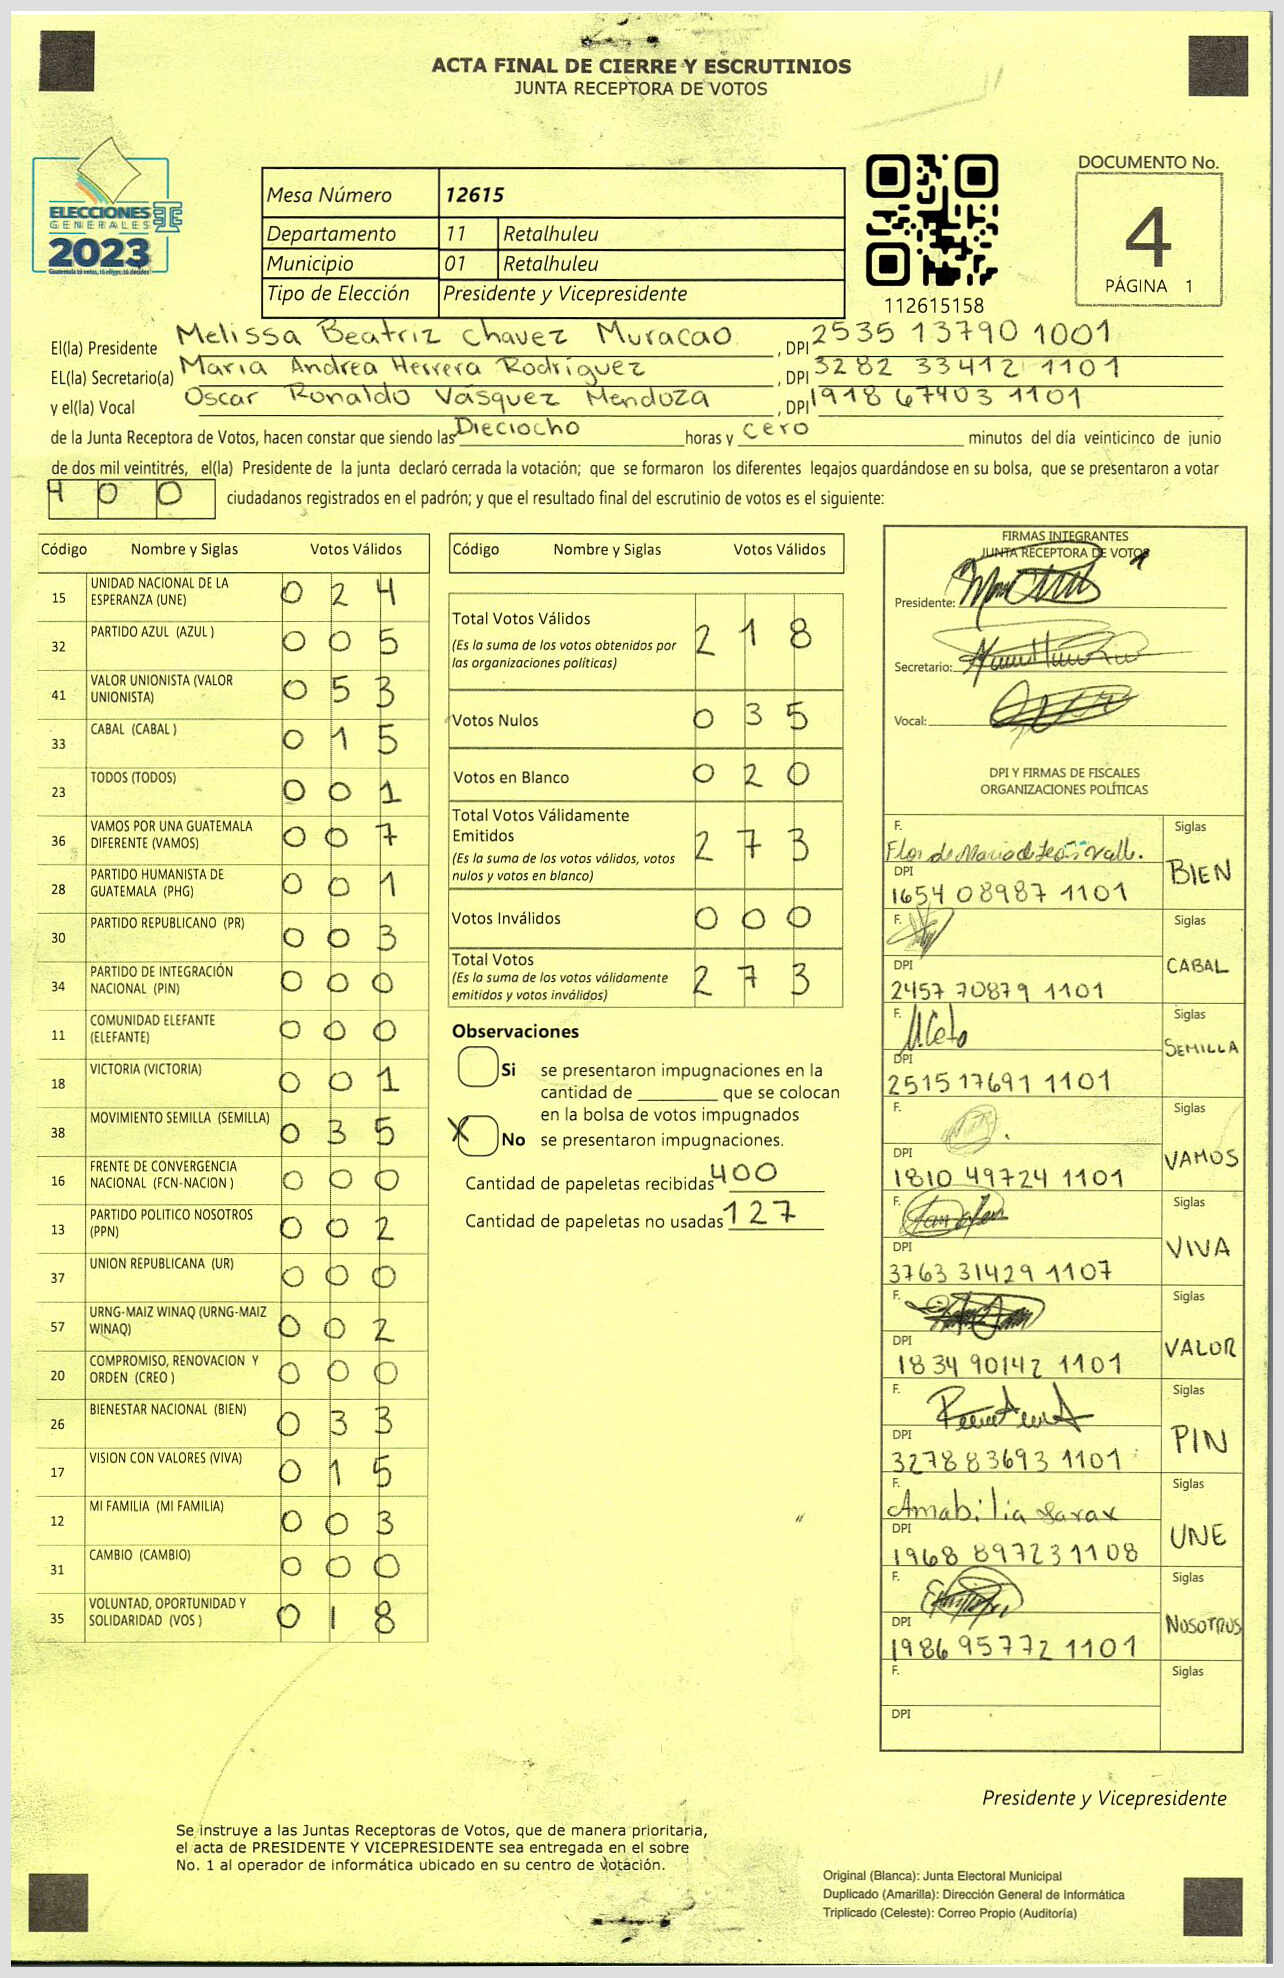 ACTA FINAL DE CIERRE Y ESCRUTINIOS
JUNTA RECEPTORA DE VOTOS
ELECCIONES
GENERALES
2023
Mesa Número 12615
Departamento 11 Retalhuleu
Municipio 01 Retalhuleu
Tipo de Elección Presidente y Vicepresidente
112615158
DOCUMENTO No.
4
PÁGINA 1
El(la) Presidente Melissa Beatriz Chavez Muracao, DPI 2535 13790 1001
EL(la) Secretario(a) Maria Andrea Herrera Rodríguez, DPI 3282 33412 1101
y el(la) Vocal Oscar Ronaldo Vásquez Mendoza, DPI 1918 67403 1101
de la Junta Receptora de Votos, hacen constar que siendo las Dieciocho horas y cero minutos del día veinticinco de junio
de dos mil veintitrés, el(la) Presidente de la junta declaró cerrada la votación; que se formaron los diferentes legajos guardándose en su bolsa, que se presentaron a votar
400 ciudadanos registrados en el padrón; y que el resultado final del escrutinio de votos es el siguiente:
Código Nombre y Siglas Votos Válidos
15 UNIDAD NACIONAL DE LA ESPERANZA (UNE) 0 2 4
32 PARTIDO AZUL (AZUL ) 0 0 5
41 VALOR UNIONISTA (VALOR UNIONISTA) 0 5 3
33 CABAL (CABAL ) 0 1 5
23 TODOS (TODOS) 0 0 1
36 VAMOS POR UNA GUATEMALA DIFERENTE (VAMOS) 0 0 7
28 PARTIDO HUMANISTA DE GUATEMALA (PHG) 0 0 1
30 PARTIDO REPUBLICANO (PR) 0 0 3
34 PARTIDO DE INTEGRACIÓN NACIONAL (PIN) 0 0 0
11 COMUNIDAD ELEFANTE (ELEFANTE) 0 0 0
18 VICTORIA (VICTORIA) 0 0 1
38 MOVIMIENTO SEMILLA (SEMILLA) 0 3 5
16 FRENTE DE CONVERGENCIA NACIONAL (FCN-NACION ) 0 0 0
13 PARTIDO POLITICO NOSOTROS (PPN) 0 0 2
37 UNION REPUBLICANA (UR) 0 0 0
57 URNG-MAIZ WINAQ (URNG-MAIZ WINAQ) 0 0 2
20 COMPROMISO, RENOVACION Y ORDEN (CREO ) 0 0 0
26 BIENESTAR NACIONAL (BIEN) 0 3 3
17 VISION CON VALORES (VIVA) 0 1 5
12 MI FAMILIA (MI FAMILIA) 0 0 3
31 CAMBIO (CAMBIO) 0 0 0
35 VOLUNTAD, OPORTUNIDAD Y SOLIDARIDAD (VOS ) 0 1 8
Código Nombre y Siglas Votos Válidos
Total Votos Válidos 2 1 8
(Es la suma de los votos obtenidos por
las organizaciones políticas)
Votos Nulos 0 3 5
Votos en Blanco 0 2 0
Total Votos Válidamente
Emitidos 2 7 3
(Es la suma de los votos válidos, votos
nulos y votos en blanco)
Votos Inválidos 0 0 0
Total Votos 2 7 3
(Es la suma de los votos válidamente
emitidos y votos inválidos)
Observaciones
Si se presentaron impugnaciones en la
cantidad de ________ que se colocan
en la bolsa de votos impugnados
X No se presentaron impugnaciones.
Cantidad de papeletas recibidas 400
Cantidad de papeletas no usadas 127
FIRMAS INTEGRANTES
JUNTA RECEPTORA DE VOTOS
Presidente:
Secretario:
Vocal:
DPI Y FIRMAS DE FISCALES
ORGANIZACIONES POLÍTICAS
F. Siglas
Flor de Maria de León Valle.
DPI BIEN
1654 08987 1101
F. Siglas
DPI CABAL
2457 70879 1101
F. Siglas
DPI SEMILLA
2515 17691 1101
F. Siglas
DPI VAMOS
1810 49724 1101
F. Siglas
DPI VIVA
3763 31429 1107
F. Siglas
DPI VALOR
1834 90142 1101
F. Siglas
DPI PIN
3278 83693 1101
F. Siglas
Amabilia
DPI UNE
1968 89723 1108
F. Siglas
DPI NOSOTROS
1986 95772 1101
F. Siglas
DPI
Presidente y Vicepresidente
Se instruye a las Juntas Receptoras de Votos, que de manera prioritaria,
el acta de PRESIDENTE Y VICEPRESIDENTE sea entregada en el sobre
No. 1 al operador de informática ubicado en su centro de votación.
Original (Blanca): Junta Electoral Municipal
Duplicado (Amarilla): Dirección General de Informática
Triplicado (Celeste): Correo Propio (Auditoría)